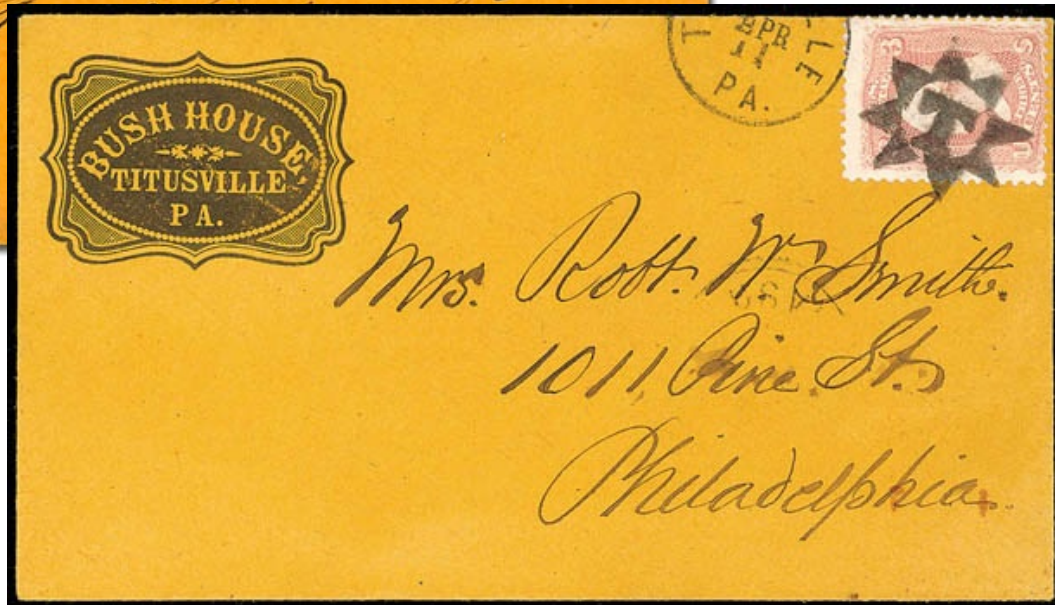 BUSH HOUSE,
TITUSVILLE
PA.
T LE
APR
11
PA.
3 CENTS
Mrs. Robt. W. Smith.
1011 Pine St.
Philadelphia.